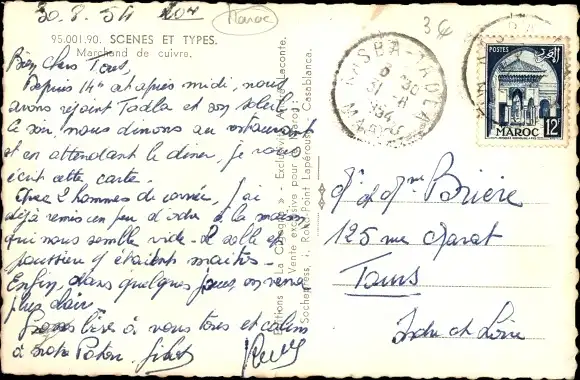 30.8.54
Maroc
3€
95.001.90. SCENES ET TYPES.
Marchand de cuivre.
Bien chers Tous,
Depuis 14h cet après midi, nous
avons rejoint Tadla et son soleil
Ce soir, nous dinons au restaurant
et en attendant le diner, je vous
écris cette carte.
Avec 2 hommes de corvée, j'ai
déjà remis un peu d'ordre à la maison
qui nous semble vide. Le sable et
poussière y étaient maîtres.
Enfin, dans quelques jours, on verra
plus clair.
Grosses bises à vous tous et calins
à Poton.
Editions « La Cigogne » - Exclusivité
Vente exclusive pour le Maroc
Sochepress, 1, Rond-Point Lapérouse, Casablanca.
KASBA-TADLA
30
31-8
1954
MAROC
POSTES
MAROC 12F
Mr et Mme Brière
125 rue Marat
Tours
Indre et Loire